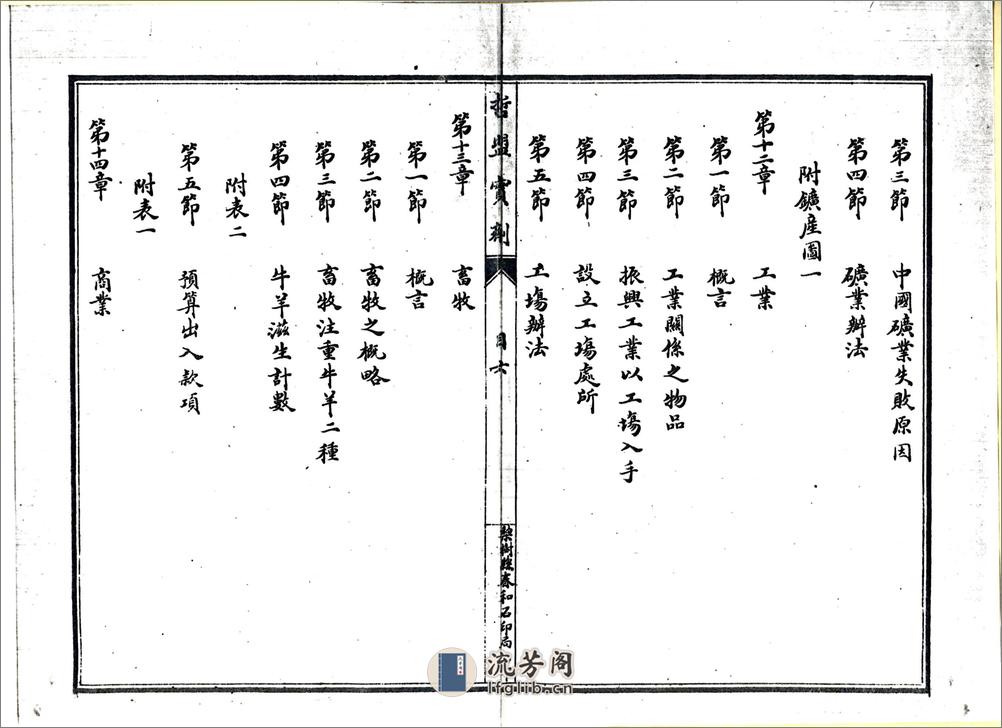 第三節 中國礦業失敗原因
第四節 礦業辦法
附鑛産圖一
第十二章 工業
第一節 概言
第二節 工業關係之物品
第三節 振興工業以工塲入手
第四節 設立工塲處所
第五節 工塲辦法
哲盟實剂 目六 梨樹縣春和石印局
第十三章 畜牧
第一節 概言
第二節 畜牧之概略
第三節 畜牧注重牛羊二種
第四節 牛羊滋生計數
附表二
第五節 預算出入款項
附表一
第十四章 商業
流芳阁
lfglib.cn